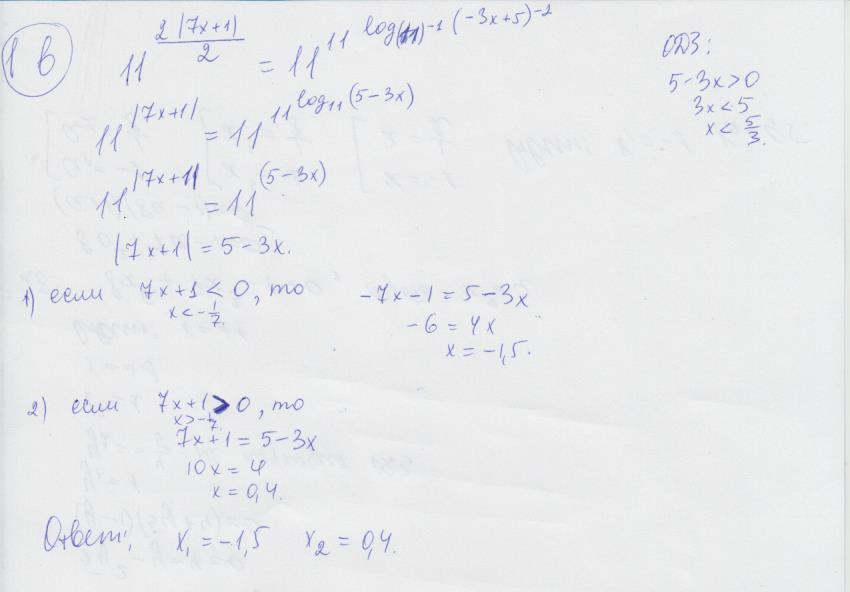 1 в
11^(2|7x+1|/2) = 11^(11^(log_(11)^-1 (-3x+5)^-2))
ОДЗ:
5-3x>0
3x<5
x<5/3.
11^|7x+1| = 11^(11^(log_11 (5-3x)))
11^|7x+1| = 11^(5-3x)
|7x+1| = 5-3x.
1) если 7x+1<0, то -7x-1=5-3x
x<-1/7. -6=4x
x=-1,5.
2) если 7x+1>0, то
x>-1/7.
7x+1=5-3x
10x=4
x=0,4.
Ответ: x₁=-1,5 x₂=0,4.